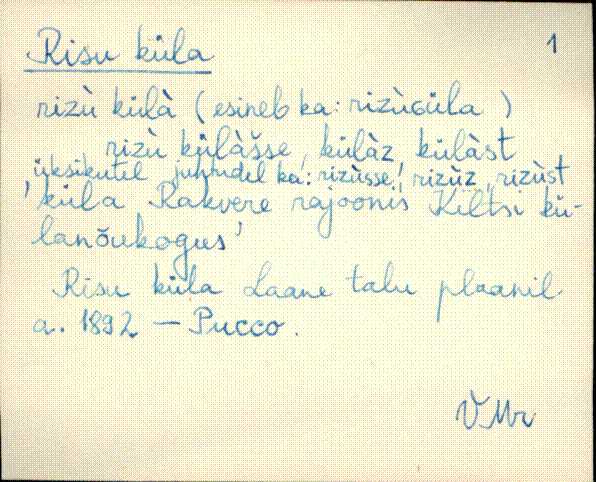 Risu küla 1
rizù külà (esineb ka: rizùGüla )
rizù külàšse, külàz, külàst
üksikutel juhtudel ka: rizùsse, rizùz, rizùst
'küla Rakvere rajoonis Kiltsi kü-
lanõukogus'
Risu küla Laane talu plaanil
a. 1892 — Pucco.
VMr